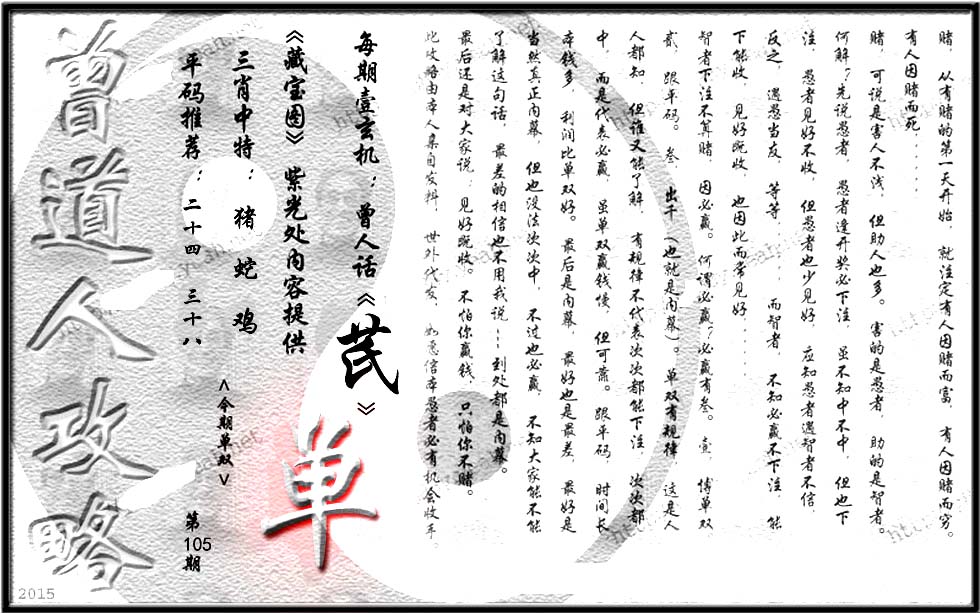 赌，从有赌的第一天开始，就注定有人因赌而富，有人因赌而穷。
有人因赌而死......
赌，可说是害人不浅，但助人也多。害的是愚者，助的是智者。
何解？先说愚者，愚者逢开奖必下注，虽不知中不中，但也下
注，愚者见好不收，但愚者也少见好，应知愚者遇智者不信，
反之，遇愚当友，等等......而智者，不知必赢不下注，能
下能收，见好既收，也因此而常见好......
智者下注不算赌，因必赢。何谓必赢？必赢有叁。壹，博单双
贰，跟平码。叁，出千（也就是内幕）。单双有规律，这是人
人都知，但谁又能了解，有规律不代表次次都能下注，次次都
中，而是代表必赢，虽单双赢钱慢，但可靠。跟平码，时间长
本钱多，利润比单双好。最后是内幕，最好也是最差，最好是
当然真正内幕，但也没法次次中，不过也必赢，不知大家能不能
了解这句话，最差的相信也不用我说---到处都是内幕。
最后还是对大家说：见好既收。不怕你赢钱，只怕你不赌。
此攻略由本人亲自发料，世外代发，如愿信本愚者必有机会收车。
每期壹玄机：曾人话《芪》
《藏宝图》紫光处内容提供
单
三肖中特：猪 蛇 鸡
<今期单双>
平码推荐：二十四 三十八
第105期
曾道人攻略
2015